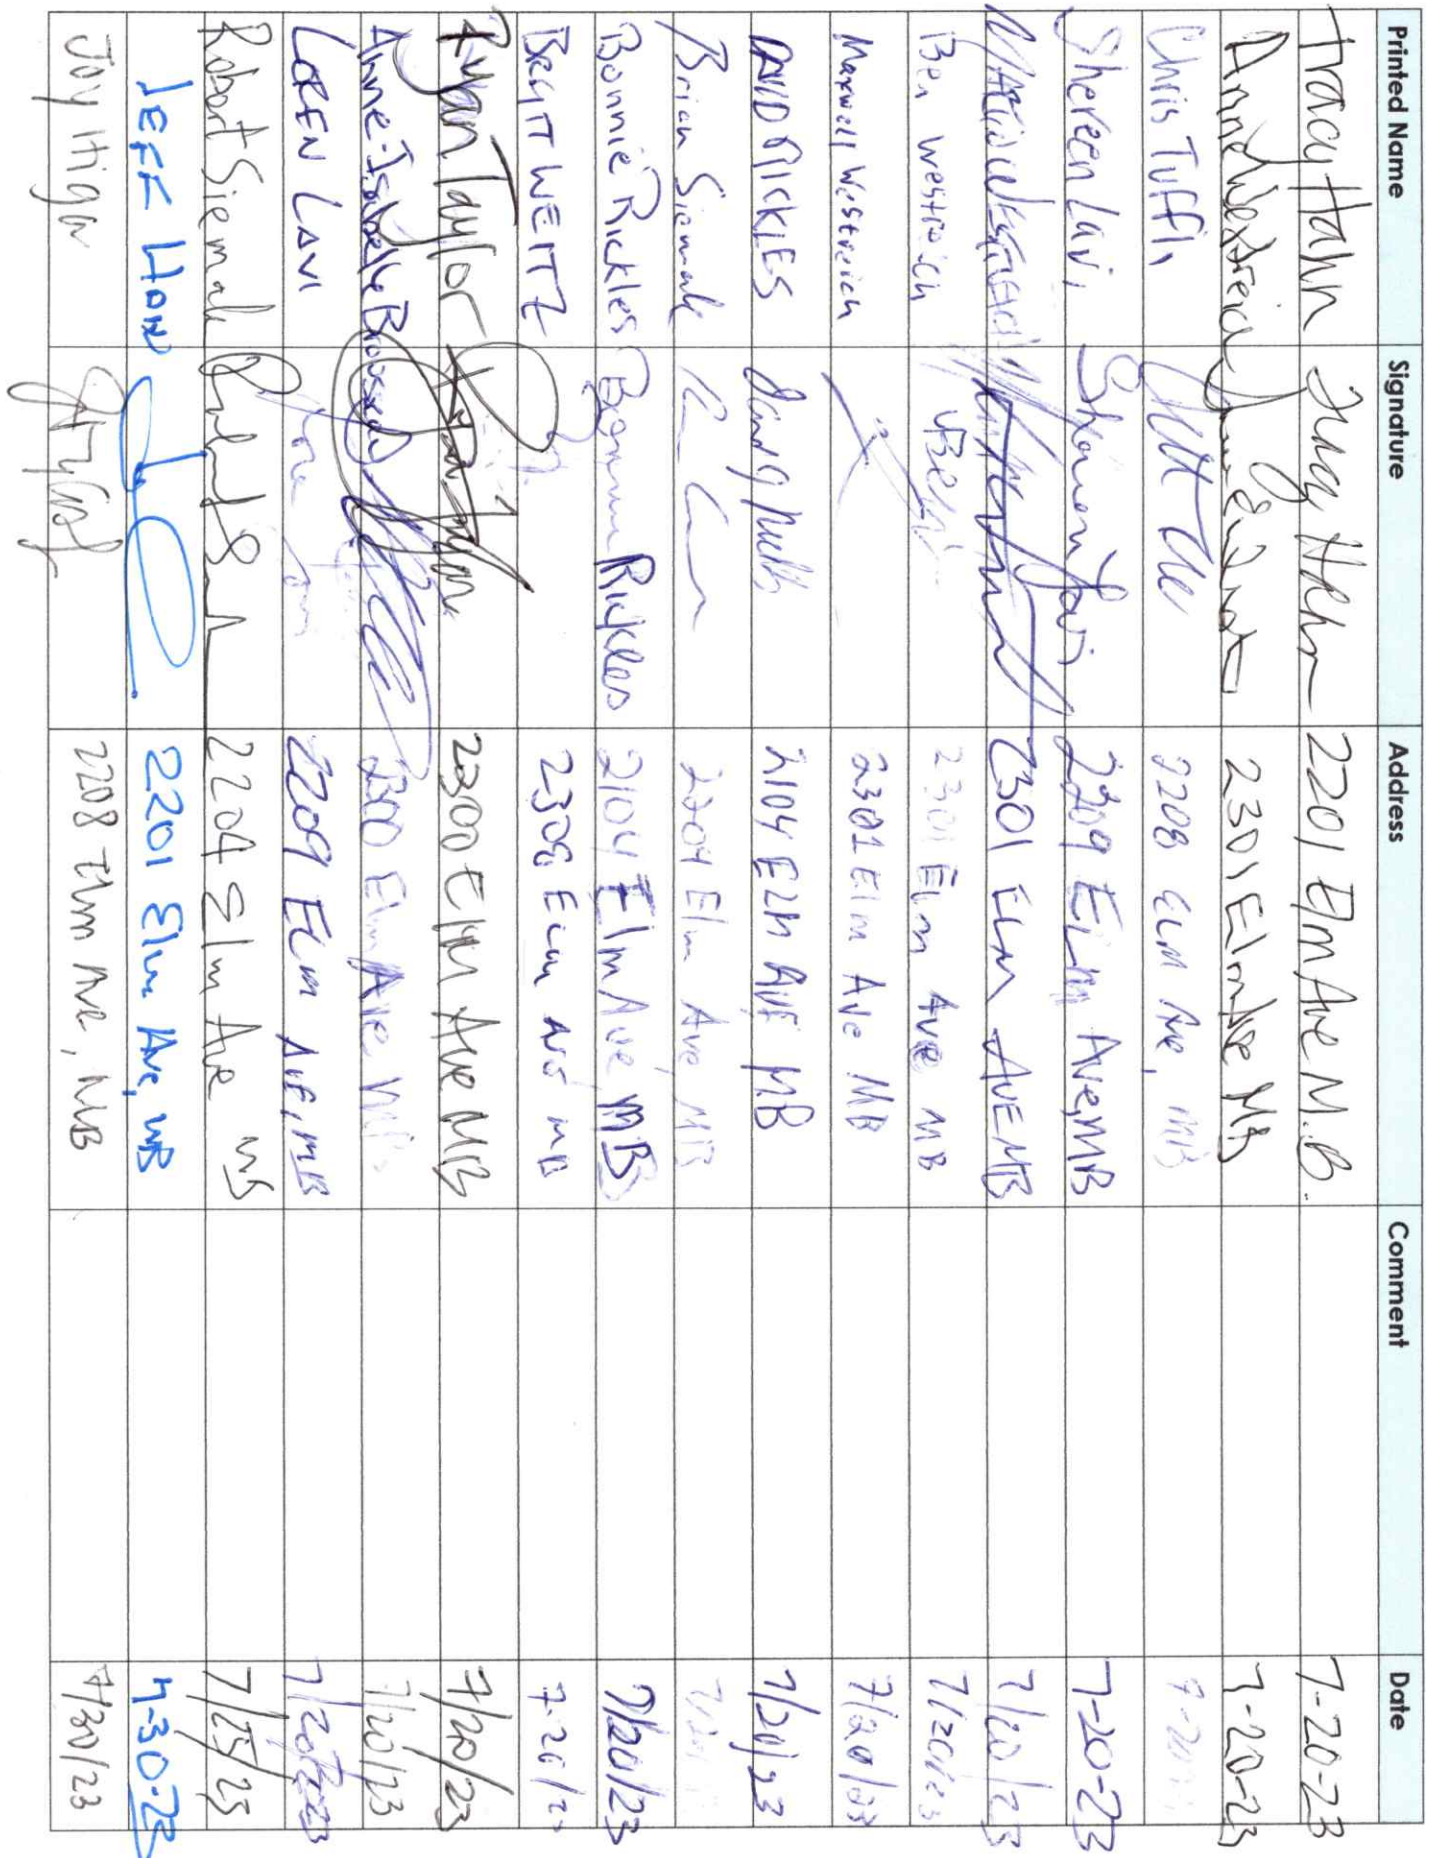 Printed Name Signature Address Comment Date
Tracy Hahn Tracy Hahn 2201 Elm Ave M.B. 7-20-23
Anne Westreich 2301 Elm Ave MB 7-20-23
Chris Tuffli 2208 Elm Ave, MB 7-20
Shereen Lavi Shereen Lavi 2209 Elm Ave, MB 7-20-23
2301 ELM AVE MB 7/20/23
Ben Westreich Ben 2301 Elm Ave MB 7/20/23
Maxwell Westreich 2301 Elm Ave MB 7/20/23
DAVID RICKLES 2104 ELM AVE MB 7/20/23
Brian Siemak 2204 Elm Ave MB
Bonnie Rickles Bonnie Rickles 2104 Elm Ave, MB 7/20/23
BRITT WEITZ 2308 Elm Ave MB 7-20/2
Ryan Taylor Ryan Taylor 2300 Elm Ave MB 7/20/23
Anne-Isabelle 2300 Elm Ave MB 7/20/23
LOREN LAVI 2209 Elm AVE, MB 7/20/23
Robert Siemak 2204 Elm Ave MB 7/25/23
JEFF HON 2201 Elm Ave, MB 7-30-23
Joy Higa 2208 Elm Ave, MB 7/30/23